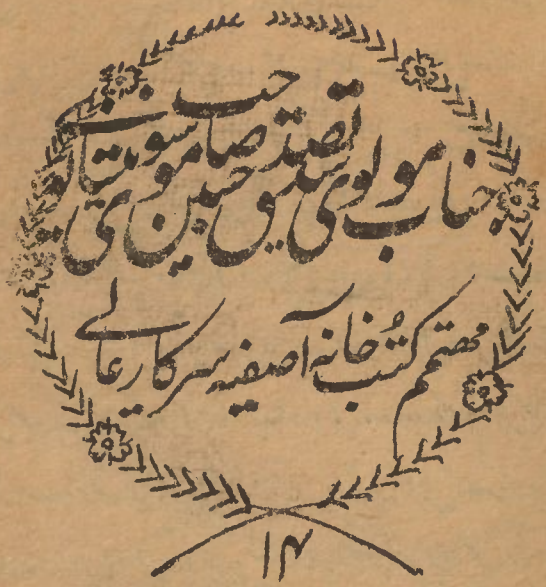 جناب مولوی سید تصدق حسین صاحب موسوی
مہتمم کتب خانہ آصفیہ سرکار عالے
۱۴